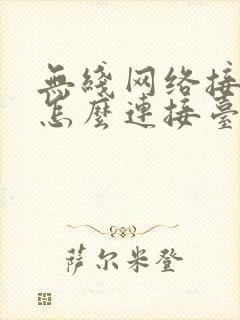 無綫网络接
怎麼連接臺
萨尔米登